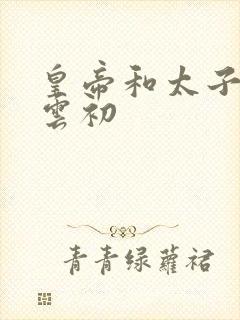 皇帝和太子
雲初
青青绿蘿裙